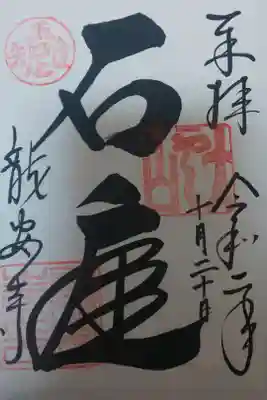 奉拝
令和二年
十月二十日
石庭
龍安寺